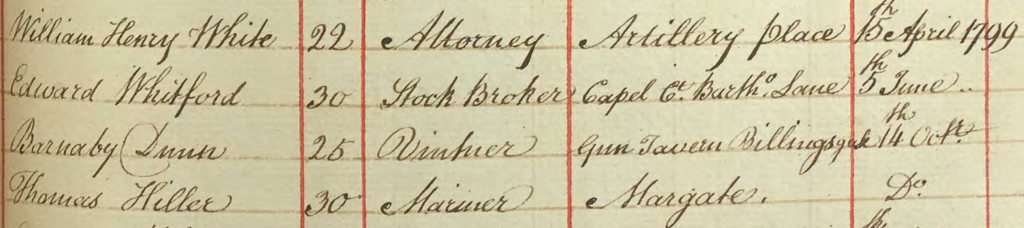 William Henry White 22 Attorney Artillery place 15th April 1799
Edward Whitford 30 Stock Broker Capel Ct. Bartho. Lane 5th June ..
Barnaby Dunn 25 Vintner Gun Tavern Billingsgate 14th Octr.
Thomas Hiller 30 Mariner Margate. Do